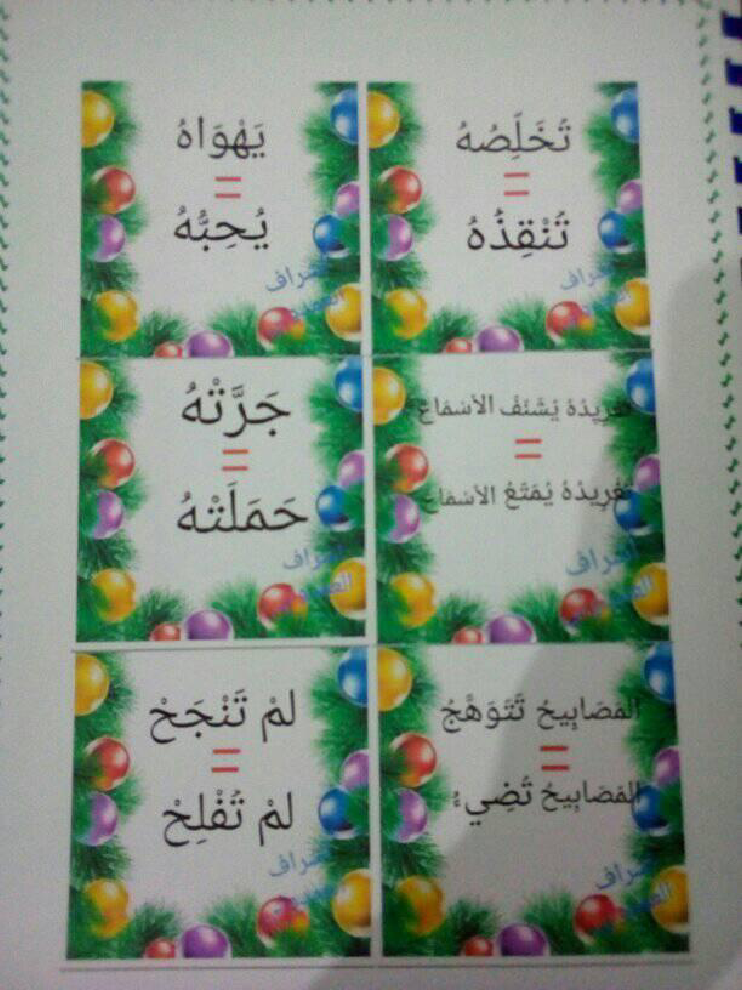 تَخَلِّصُهُ
=
تُنْقِذُهُ
يَهْوَاهُ
=
يُحِبُّهُ
تغريدُهُ يُشَنِّفُ الأسْمَاعَ
=
تغريدُهُ يُمَتِّعُ الأسْمَاعَ
جَرَّتْهُ
=
حَمَلَتْهُ
المَصَابِيحُ تَتَوَهَّجُ
=
المَصَابِيحُ تُضِيءُ
لمْ تَنْجَحْ
=
لمْ تُفْلِحْ
اشراف